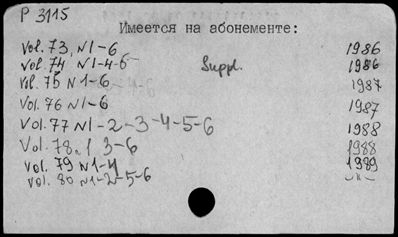 P 3115
Имеется на абонементе:
Vol. 73, N1-6 1986
Vol. 74 N1-4-6 Suppl. 1986
Vol. 75 N1-6 1987
Vol. 76 N1-6 1987
Vol. 77 N1-2-3-4-5-6 1988
Vol. 78, 1 3-6 1988
Vol. 79 N1-4 1989
Vol. 80 N1-2-5-6 -"-